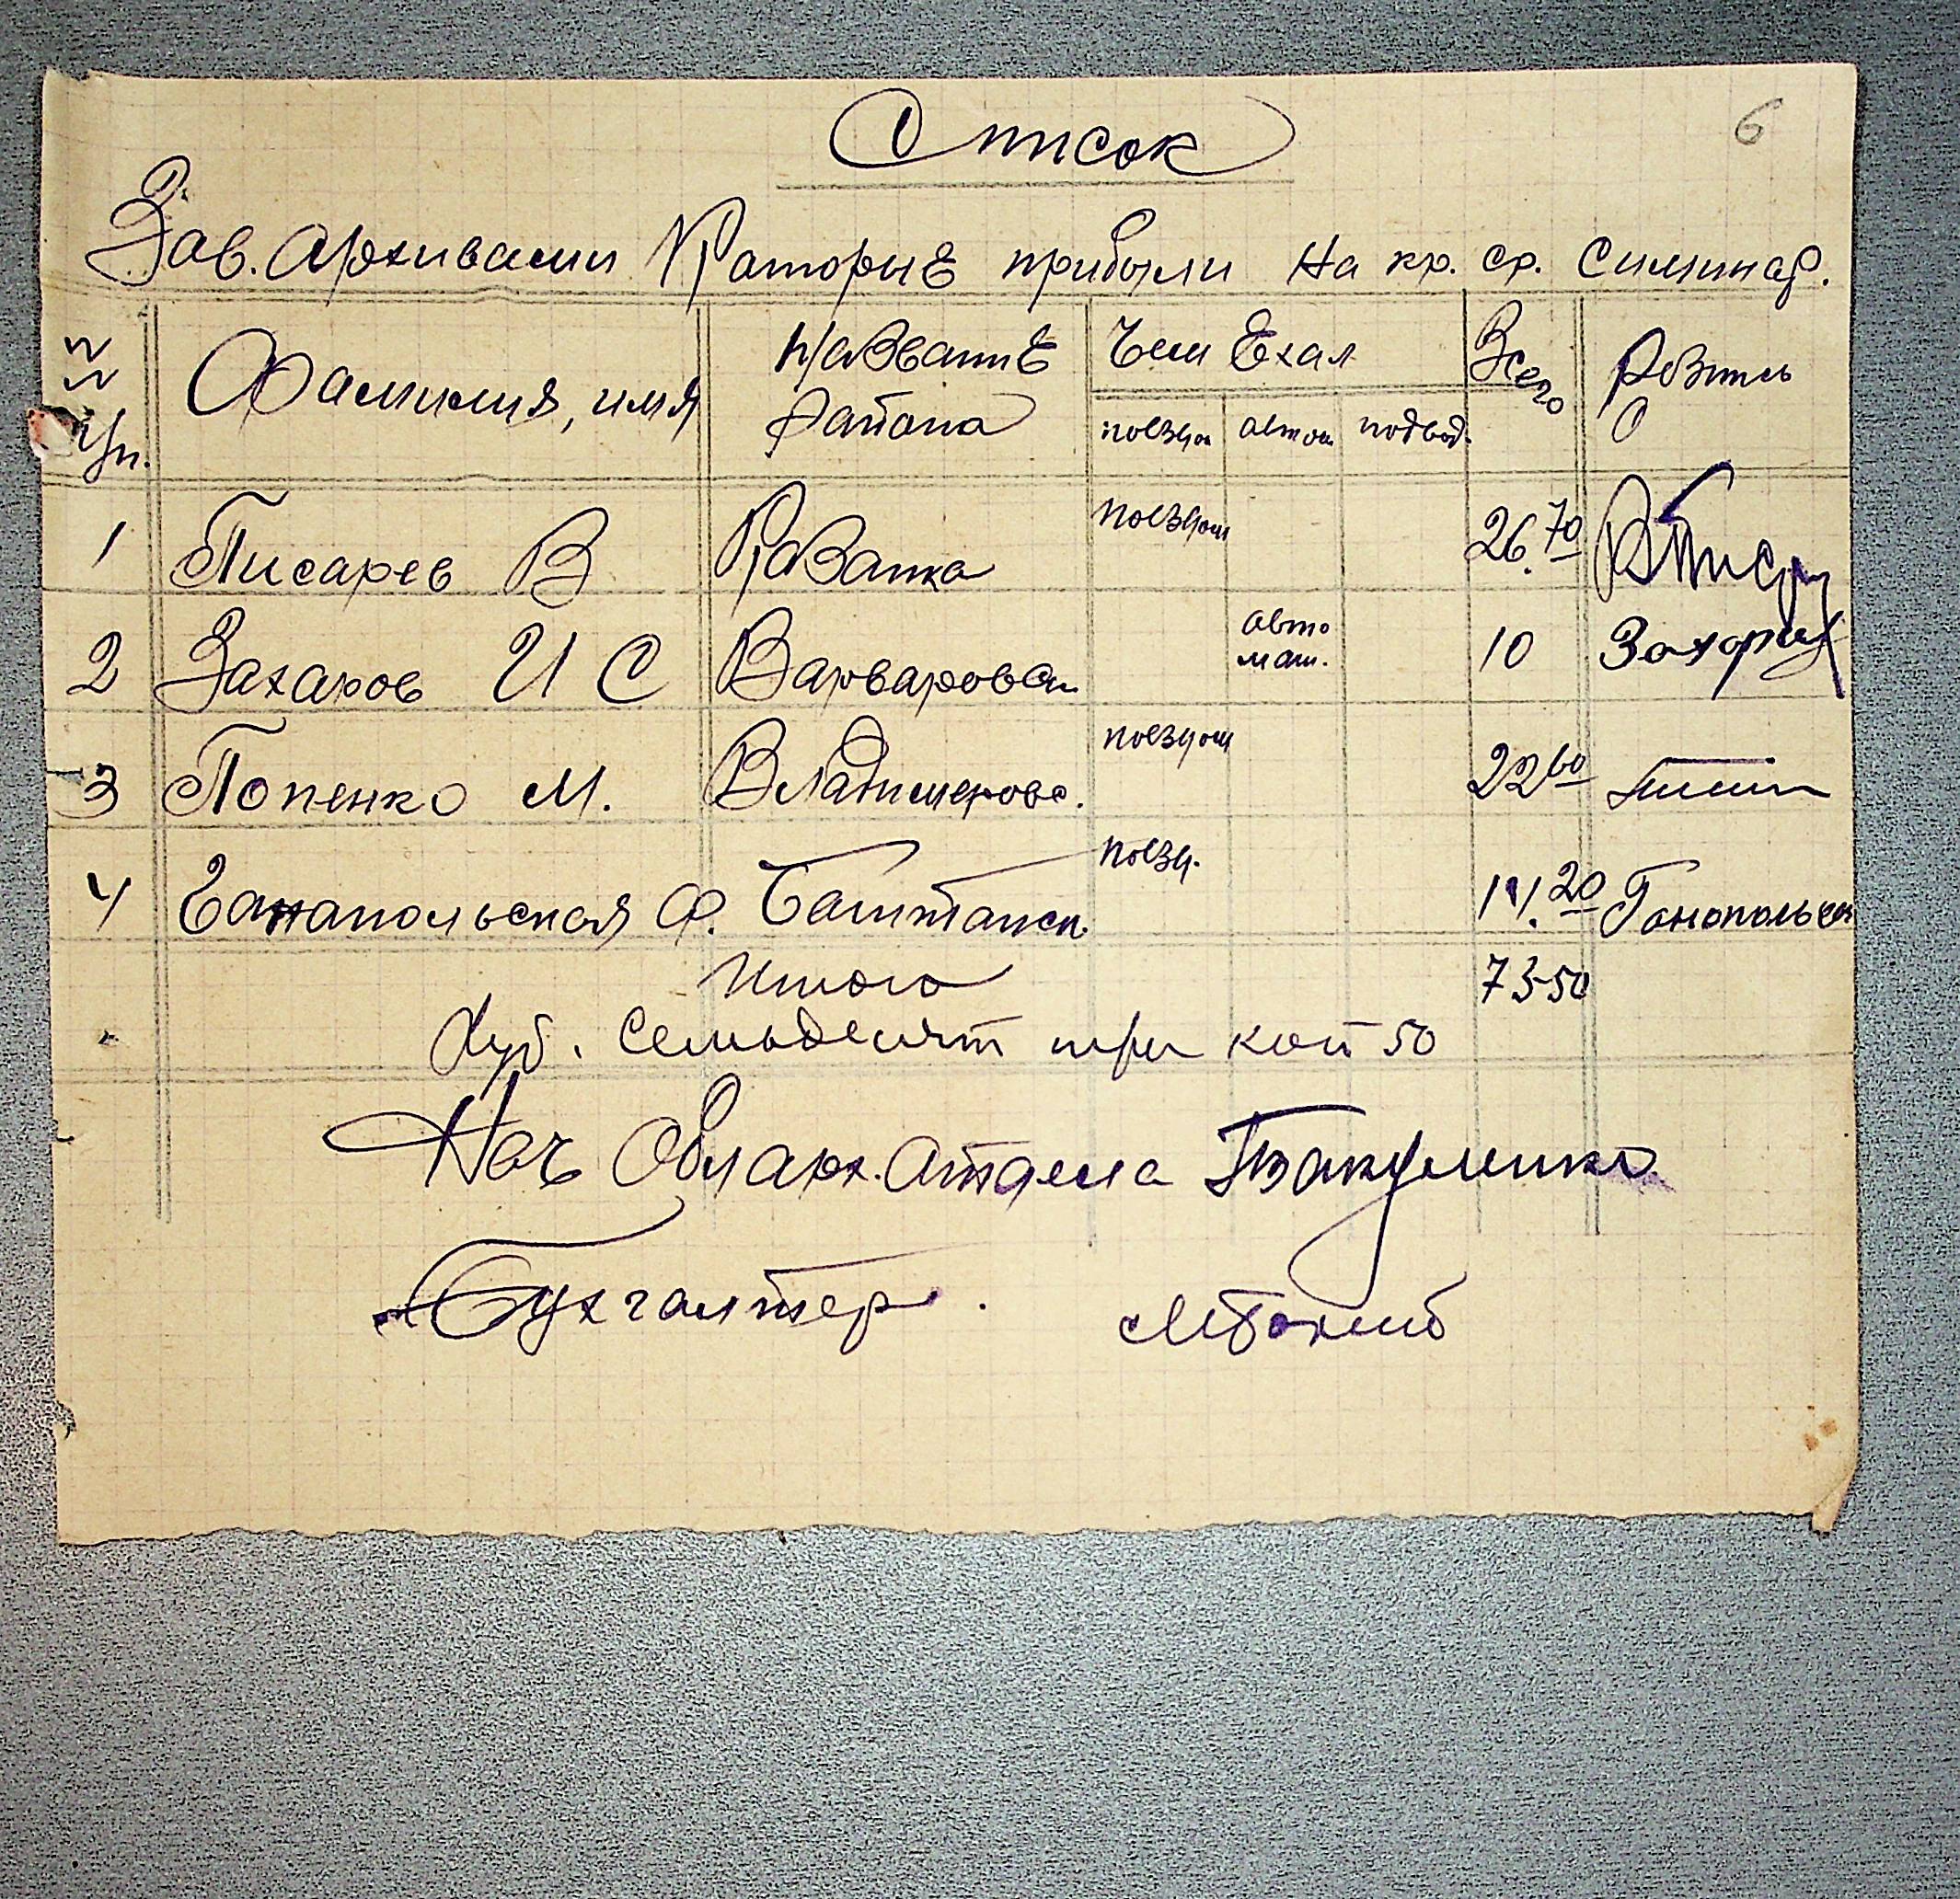 6
Список
Зав. Архивами Каторые прибыли на кр. ср. Симинар.
№№ п/п. Фамилия, имя Название района Чем Ехал Всего
поездом автом подвод.
1 Писарев В поездом 26.70
2 Захаров И С Варваровск. авто маш. 10 Захаров
3 Попенко М. Владимерово. поездом 22 60
4 Ганапольская Ф. Баштанск. поезд. 14.20 Ганопольск
Итого 73-50
Руб. Семьдесят три коп 50
Нач Обл арх. Отдела
Бухгалтер.